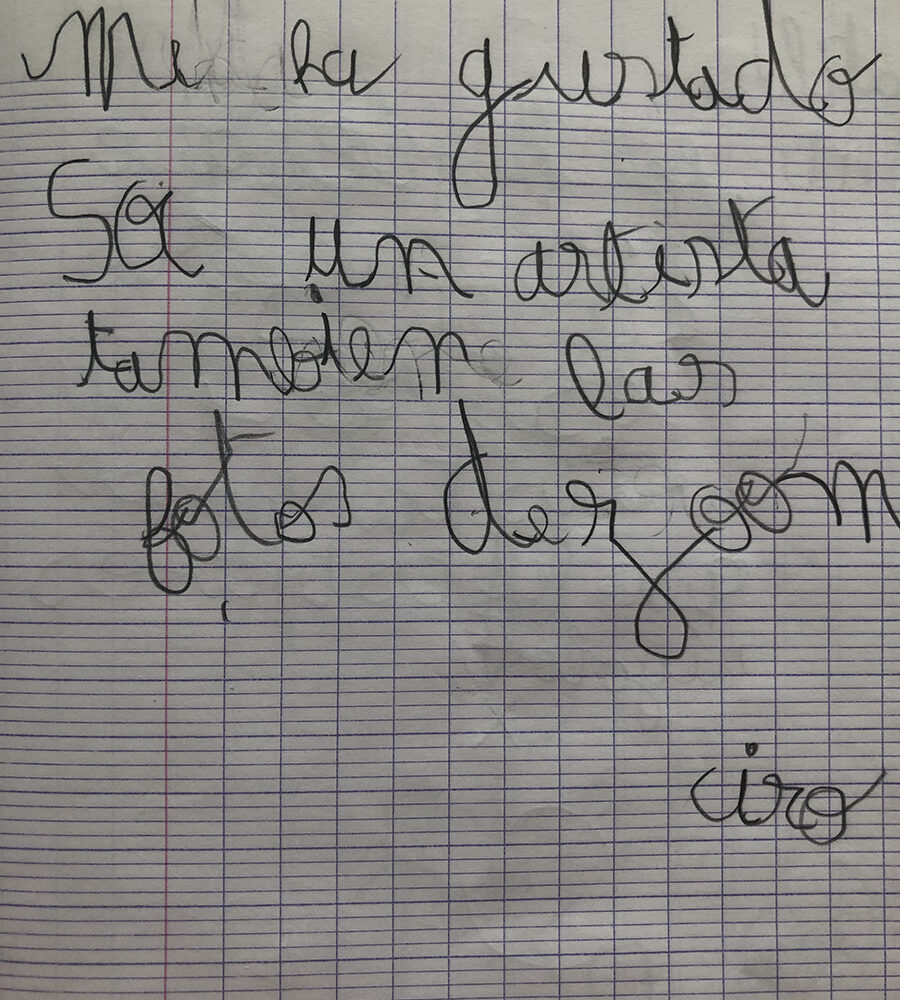 Me ha gustado
Se un artista
tambien las
fotos der
ciro